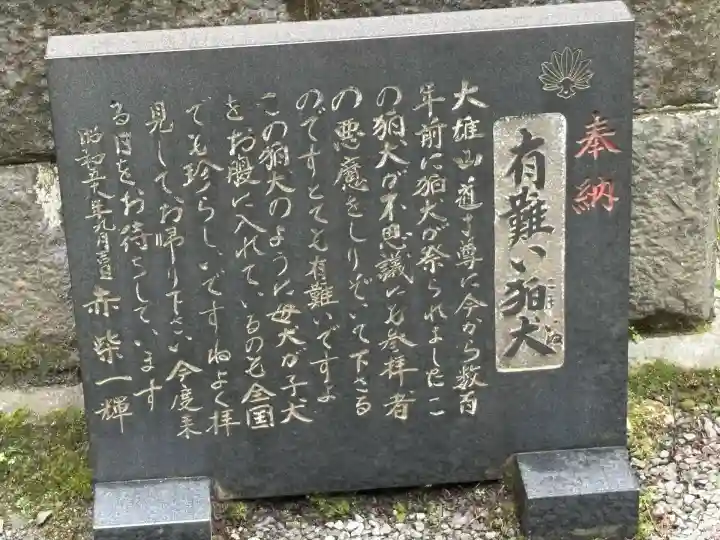 奉納
有難い狛犬
大雄山道寸尊に今から数百
年前に狛犬が祭られましたこ
の狛犬が不思議にも参拝者
の悪魔をしりぞいて下さる
のですとても有難いですよ
この狛犬のように母犬が子犬
をお股に入れているのも全国
でも珍らしいですねよく拝
見してお帰り下さい今度来
る日をお待ちしています
昭和五八年九月吉日 赤柴一輝